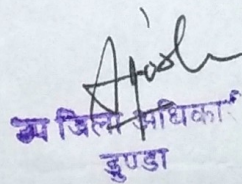 उप जिला अधिकारी
डुण्डा